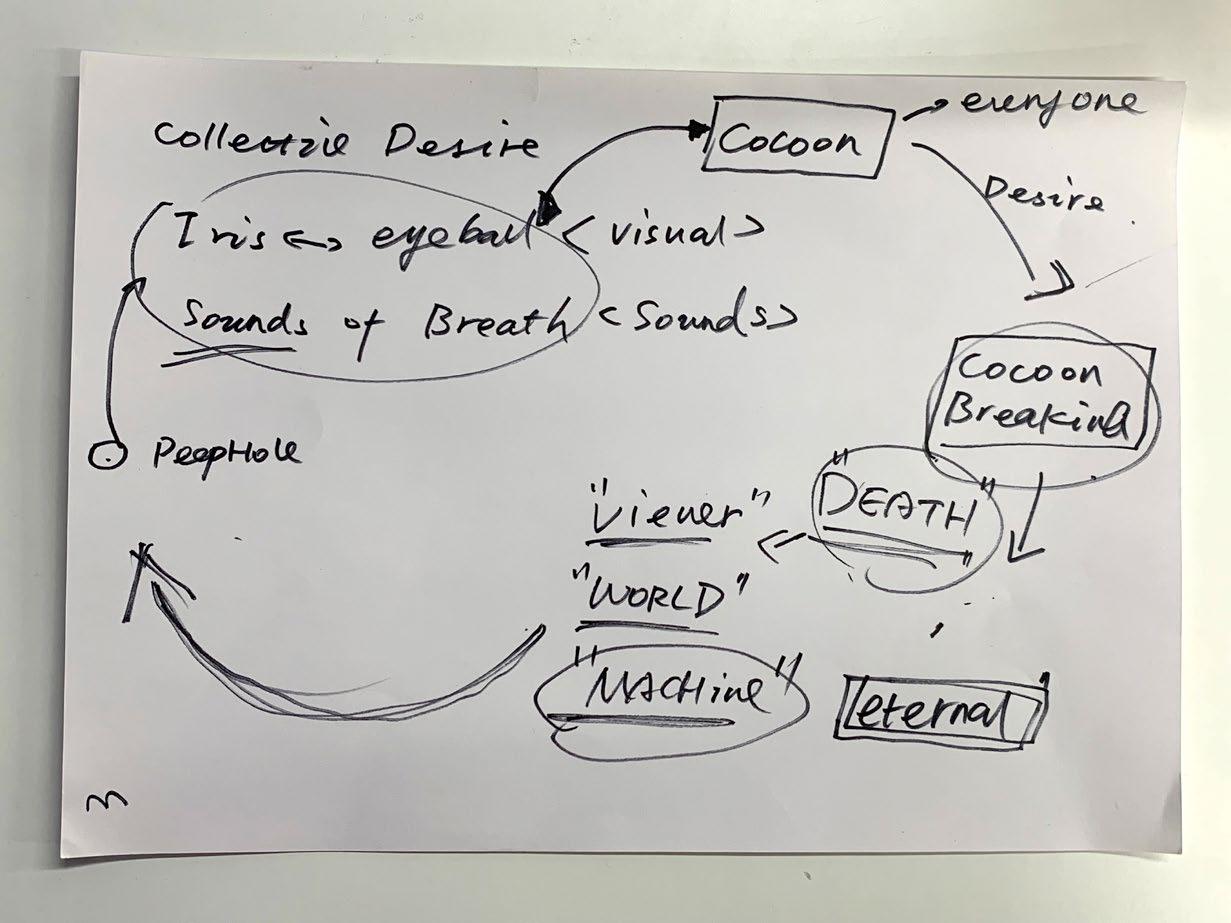 Collective Desire
Cocoon
everyone
Desire
Iris <-> eyeball <visual>
Sounds of Breath <Sounds>
Cocoon
Breaking
PeepHole
"DEATH"
"Viewer"
"WORLD"
"MACHine"
eternal
3